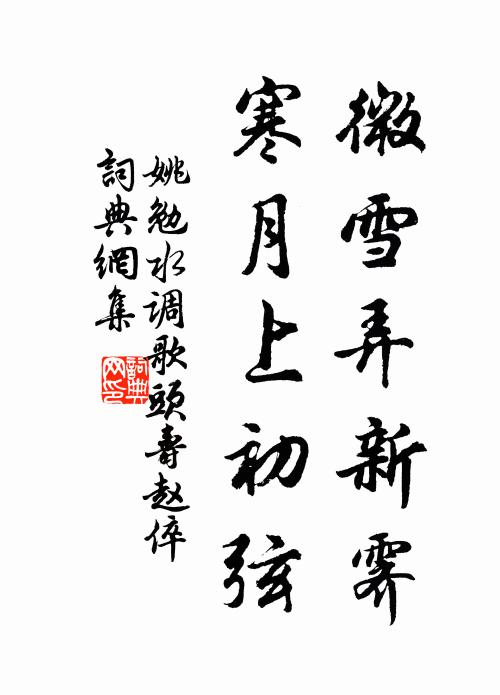 微雪弄新霁
寒月上初弦
姚勉水调歌頭壽赵倅
詞典網集
詞典
网印